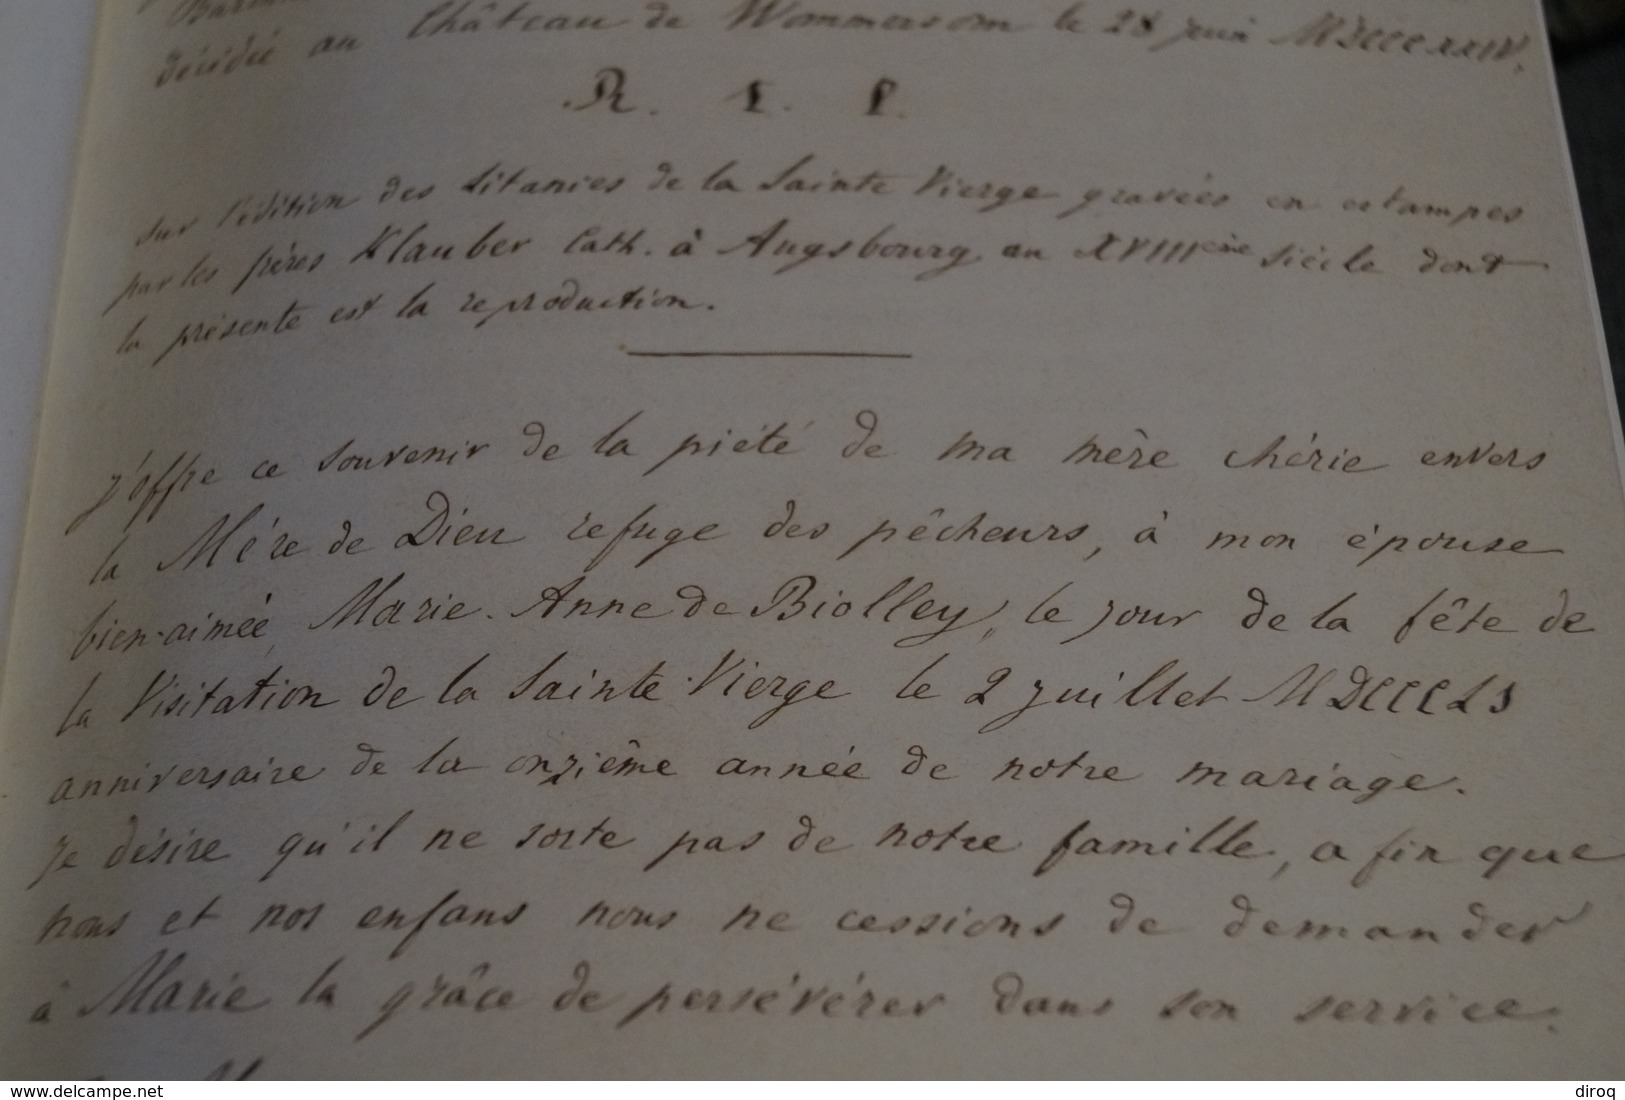 décédé au Château de Wommersom le 28 juin MDCCCXXIV.
R. I. P.
sur l'édition des Litanies de la Sainte Vierge gravées en estampes
par les frères Klauber Cath. à Augsbourg au XVIIIème siècle dont
la présente est la reproduction.
j'offre ce souvenir de la piété de ma mère chérie envers
la Mère de Dieu refuge des pêcheurs, à mon épouse
bien-aimée, Marie-Anne de Biolley, le jour de la fête de
la Visitation de la Sainte-Vierge le 2 juillet
anniversaire de la onzième année de notre mariage.
je désire qu'il ne sorte pas de notre famille, afin que
nous et nos enfans nous ne cessions de demander
à Marie la grâce de persévérer dans son service.
www.delcampe.net
diroq